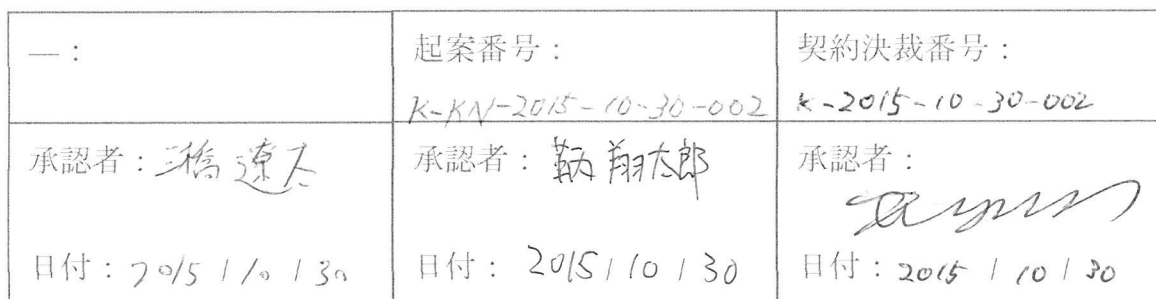 —：
起案番号：
K-KN-2015-10-30-002
契約決裁番号：
K-2015-10-30-002
承認者：三橋 遼太
日付：2015/10/30
承認者：翔太郎
日付：2015/10/30
承認者：
日付：2015/10/30